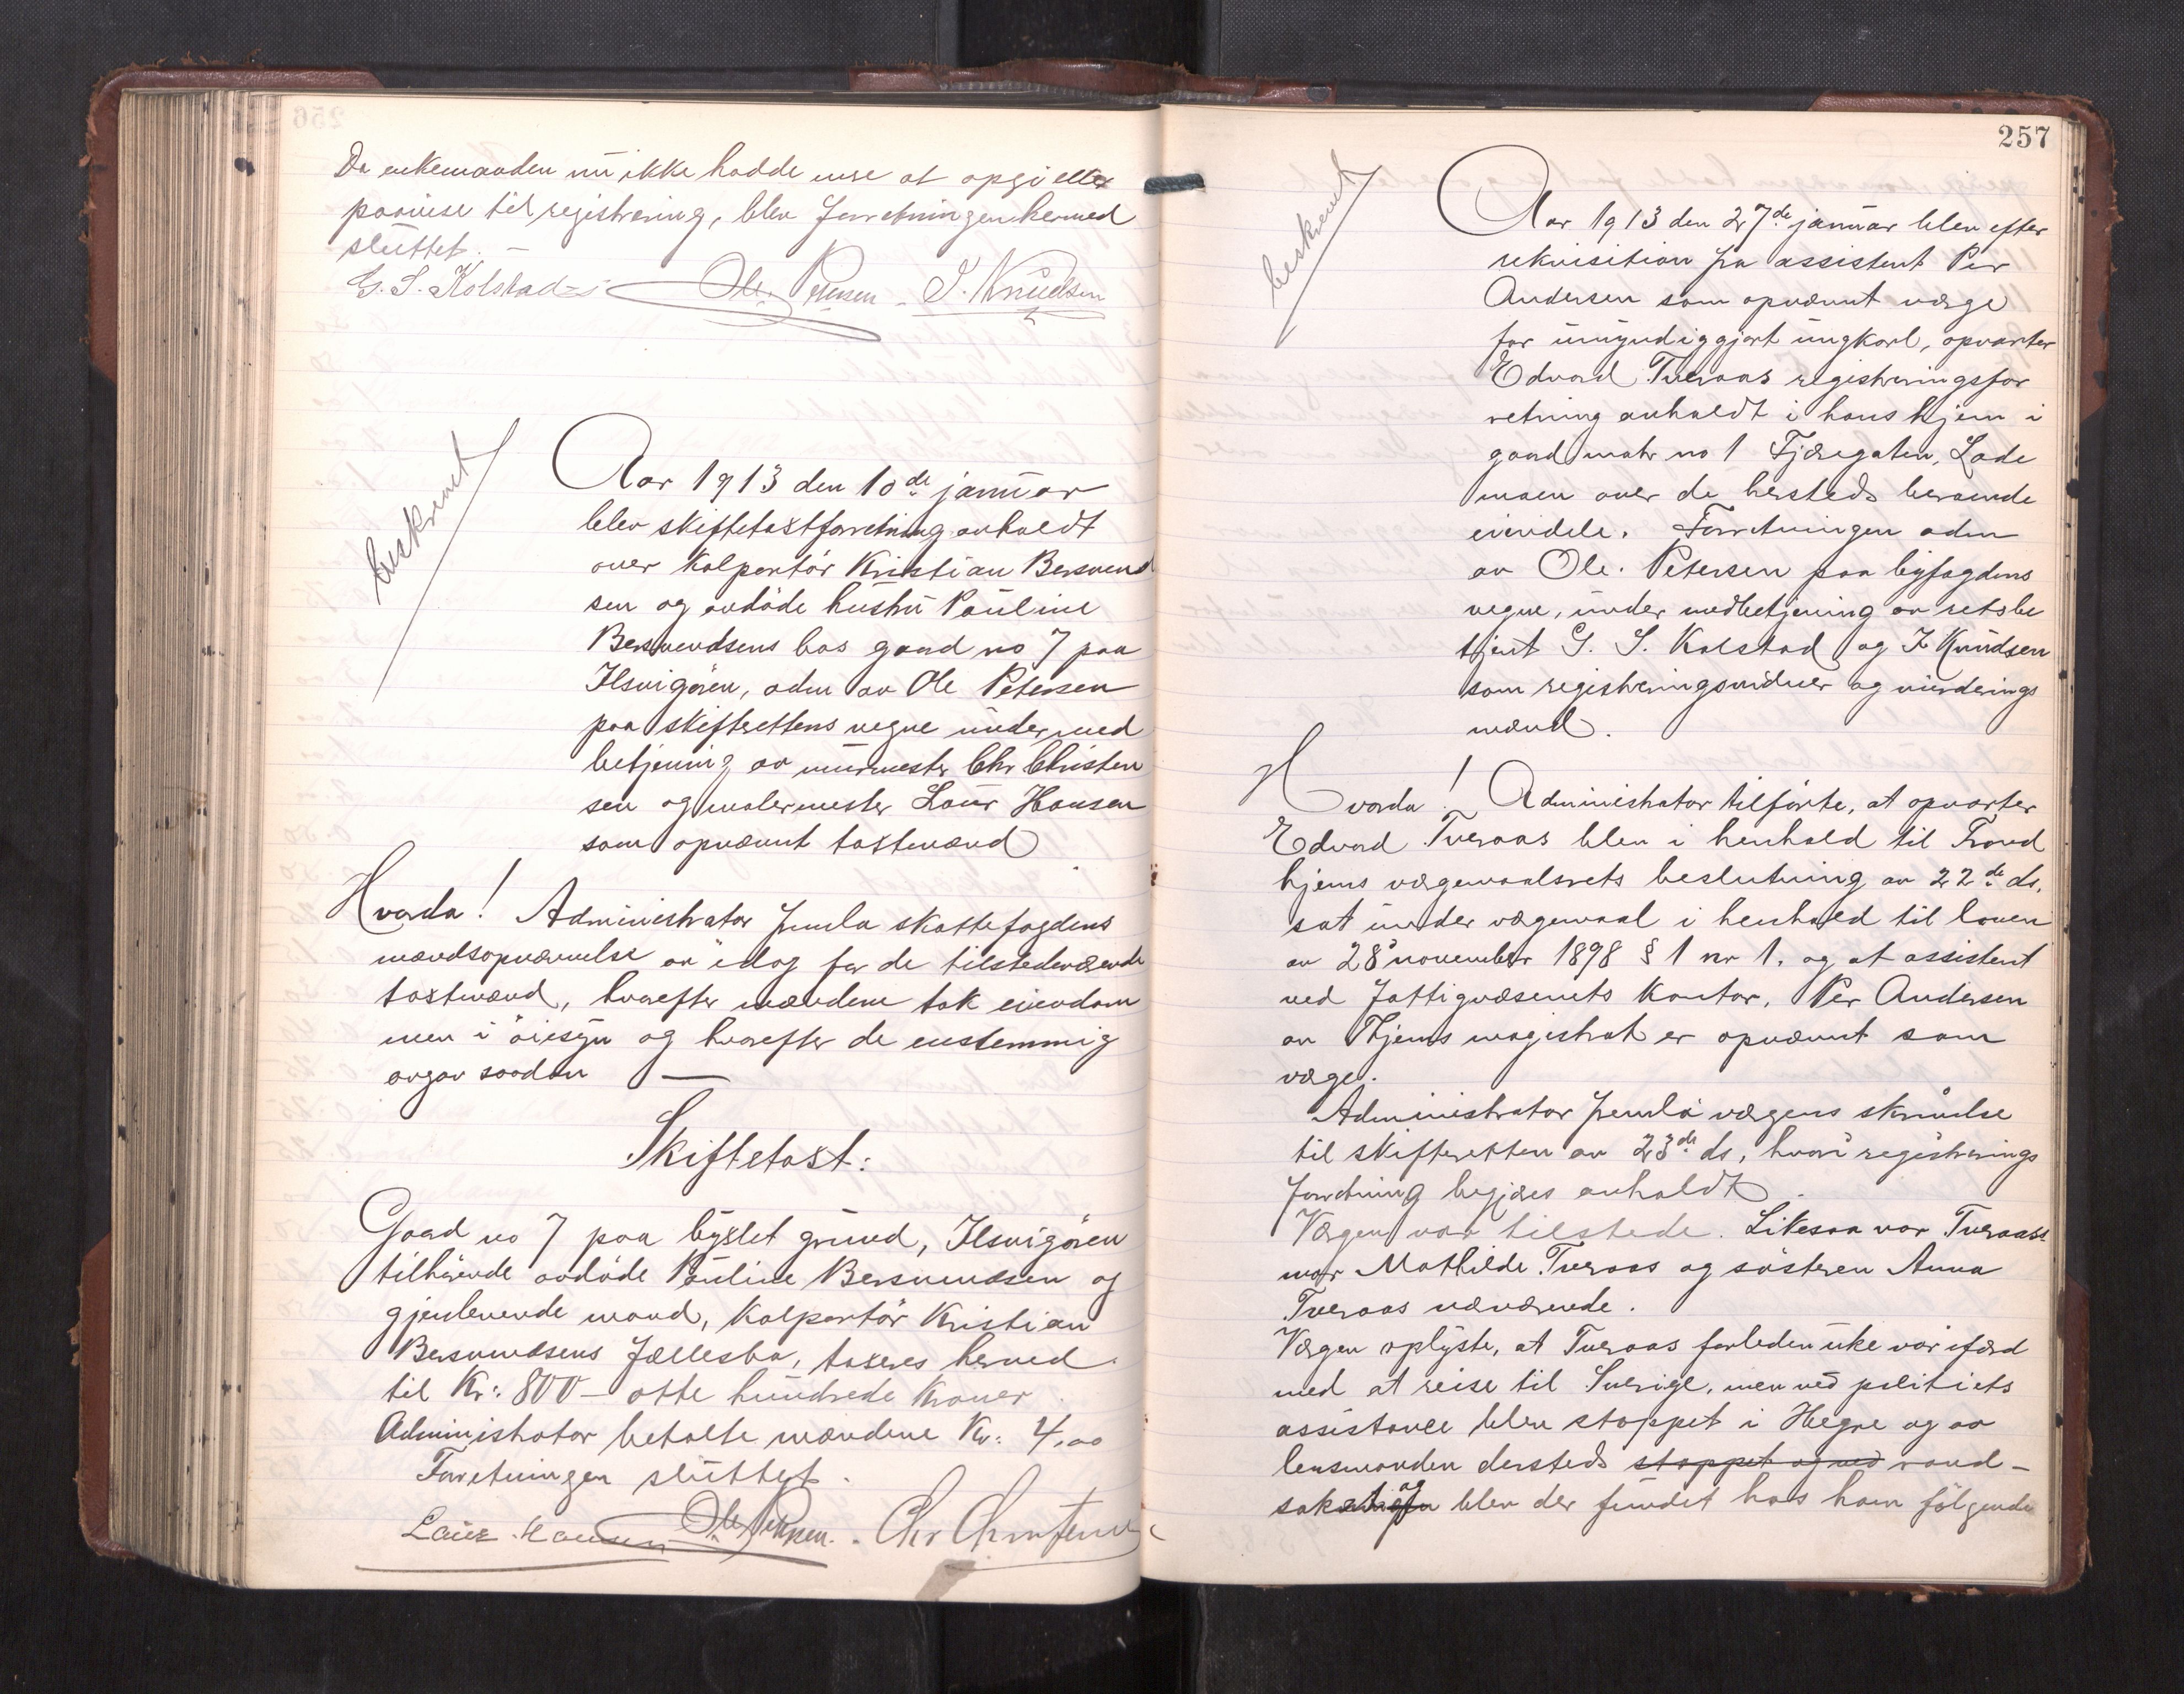 Da enkemanden nu ikke hadde mere at opgi eller
paavise til registrering, blev forretningen hermed
sluttet. –
G. S. Kolstad Ole Petersen S. Knudsen
beskrevet
Aar 1913 den 10de januar
blev skiftetaxtforretning avholdt
over kolportör Kristian Bersvend
sen og avdöde hustru Pauline
Bersvendsens bos gaard no 7 paa
Ilsvigören, adm av Ole Petersen
paa skifterettens vegne under med
betjening av murmester Chr Christen
sen og malermester Laur Hansen
som opnævnt taxtmænd
Hvorda! Administrator fremla skattefogdens
mandsopnævnelse av idag for de tilstedeværende
taxtmænd, hvorefter mændene tok eiendom
men i öiesyn og hvorefter de enstemmig
avgav saadan —
Skiftetaxt:
Gaard no 7 paa bygslet grund, Ilsvigören
tilhörende avdöde Pauline Bersvendsen og
gjenlevende mand, kolportör Kristian
Bersvendsens fællesbo, taxeres herved
til Kr: 800 – otte hundrede Kroner.
Administrator betalte mændene Kr: 4,00
Forretningen sluttet.
Laur. Hansen Ole Petersen. Chr Christensen
257
beskrevet
Aar 1913 den 27de januar blev efter
rekvisition fra assistent Per
Andersen som opnævnt værge
for umyndiggjort ungkarl, opvarter
Edvard Tveraas registreringsfor
retning avholdt i hans hjem i
gaard matr no 1 Fjæregaten, Lade
moen over de hersteds beroende
eiendele. Forretningen adm
av Ole. Petersen paa byfogdens
vegne, under medbetjening av retsbe
tjent G. S. Kolstad og S Knudsen
som registreringsvidner og vurderings
mænd.
Hvorda! Administrator tilförte, at opvarter
Edvard Tveraas blev i henhold til Trond
hjems værgemaalsrets beslutning av 22de ds.
sat under værgemaal i henhold til loven
av 28 november 1898 § 1 nr 1. og at assistent
ved fattigvæsenets kontor, Per Andersen
av Thjems magistrat er opnævnt som
værge.
Administrator fremla værgens skrivelse
til skifteretten av 23de ds, hvori registrerings
forretning begjæres avholdt.
Værgen var tilstede. Likesaa var Tveraas's
mor Mathilde Tveraas og sösteren Anna
Tveraas nærværende.
Værgen oplyste, at Tveraas forleden uke var ifærd
med at reise til Sverige, men ved politiets
assistance blev stoppet i Hegre og av
lensmanden dersteds stoppet og ved rand–
sak og blev der fundet hos ham fölgende